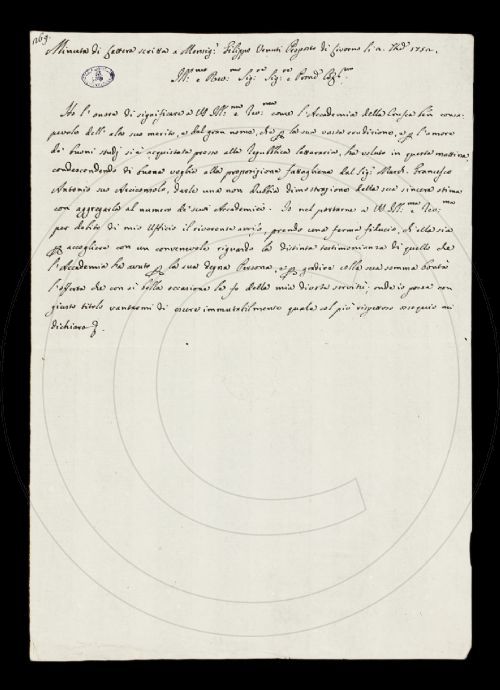 269.
Minuta di Lettera scritta a Monsig.r Filippo Venuti Proposto di Livorno li 12. 1751.
Ill.mo e Rev.mo Sig.re Sig.re e Pron. Col.mo
Ho l'onore di significare a VS Ill.ma e Rev.ma come l'Accademia della Crusca ben consa-
pevole dell'alto suo merito, e del gran nome, che p la sua vasta erudizione, e p l'amore
de' buoni studj si è acquistata presso alla Repubblica letteraria, ha voluto in questa mattina,
condescendendo di buona voglia alla proposizione fattagliene dal Sig. March. Francesco
Antonio suo Arciconsolo, darle una non dubbia dimostrazione della sua sincera stima
con aggregarla al numero de' suoi Accademici. Io nel portarne a VS Ill.ma e Rev.ma
per debito di mio Ufficio il riverente avviso, prendo una ferma fiducia, ch'ella sia
p accogliere con un convenevole riguardo la distinta testimonianza di quello che
l'Accademia ha avuto p la sua degna Persona, e p gradire colla sua somma bontà
l'offerta che con sì bella occasione le fo della mia divota servitù; onde io possa con
giusto titolo vantarmi di essere immutabilmente quale col più rispettoso ossequio mi
dichiaro